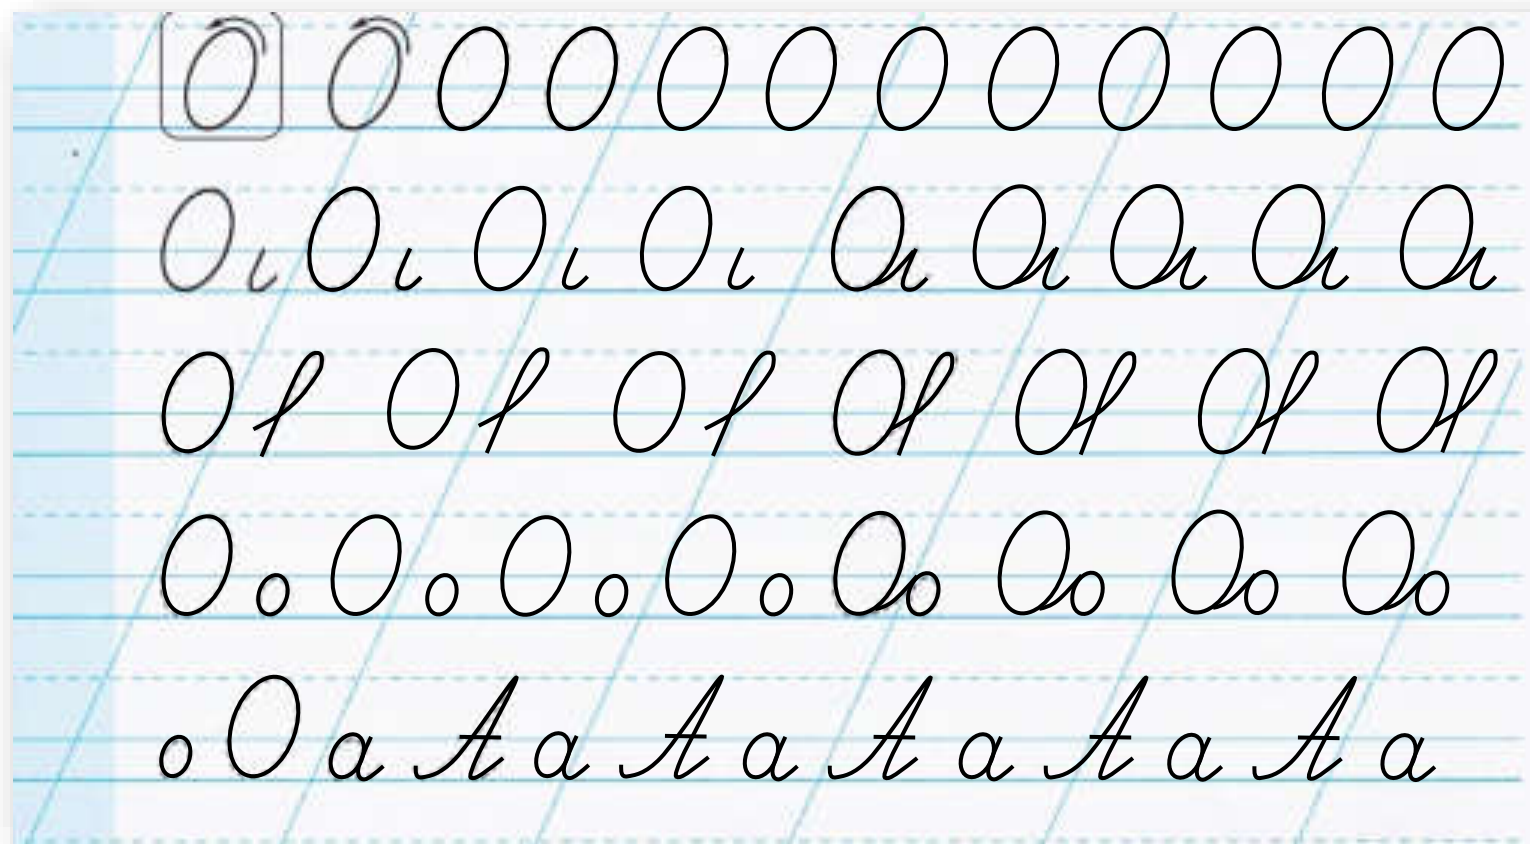 О О О О О О О О О О О О
О ι О ι О ι О ι Оι Оι Оι Оι Оι
О О О О О О О
О о О о О о О о Оо Оо Оо Оо
о О а А а А а А а А а А а